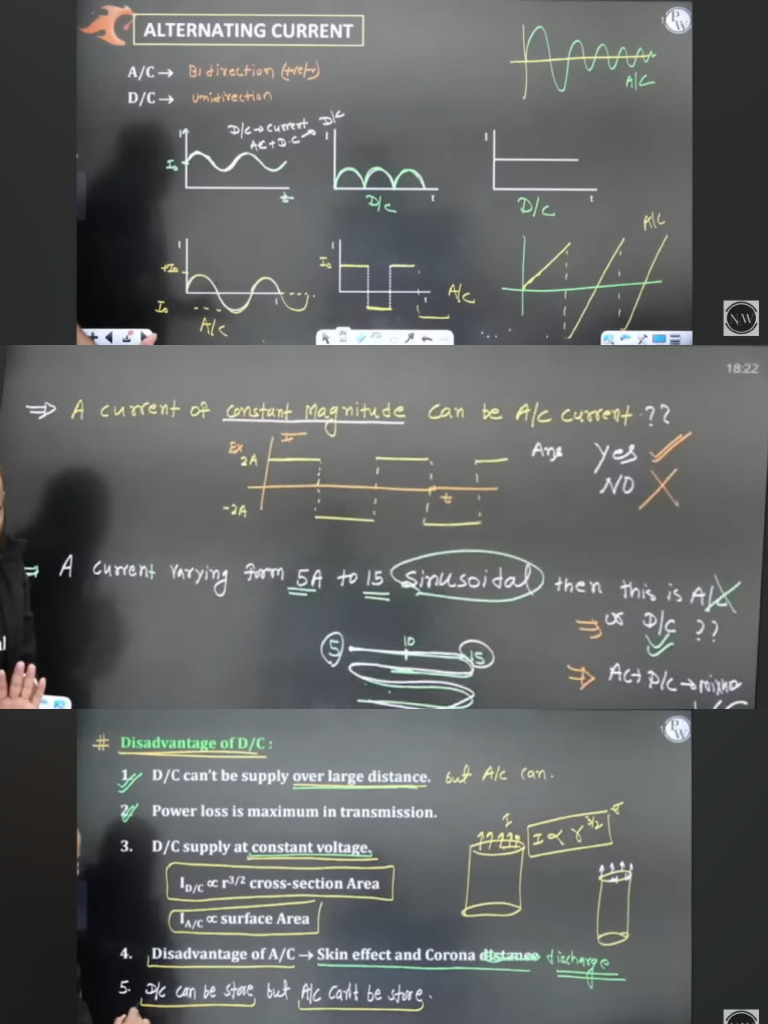 ALTERNATING CURRENT
PW
A/C → Bidirection (+ve/-)
D/C → unidirection
A/C
D/C → current
AC + D.C → D/C
I₀
t
D/C
D/C
A/C
+I₀
I₀
A/C
I₀
A/C
N.W
18:22
⇒ A current of constant magnitude can be A/c current ??
Ex
I
2A
-2A
t
Ans Yes ✓
NO ✗
⇒ A current varying form 5A to 15 sinusoidal then this is A/C
or D/C ??
5 10 15
⇒ AC + D/C →
# Disadvantage of D/C :
PW
1. D/C can't be supply over large distance. but A/c can.
2. Power loss is maximum in transmission.
3. D/C supply at constant voltage.
I
I ∝ r^3/2
I_D/C ∝ r^3/2 cross-section Area
I_A/C ∝ surface Area
4. Disadvantage of A/C → Skin effect and Corona distance discharge
5. D/c can be store but A/c can't be store.